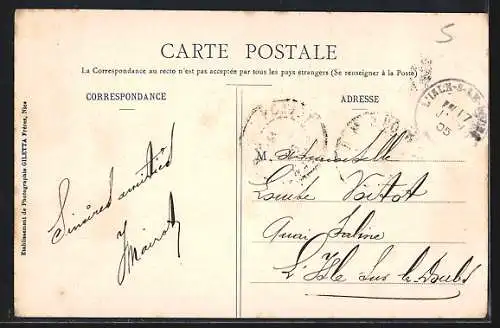 5
CARTE POSTALE
La Correspondance au recto n'est pas acceptée par tous les pays étrangers (Se renseigner à la Poste)
CORRESPONDANCE
ADRESSE
L'ISLE-S-
17
05
M.
Louise
Quai
L'Isle sur le Doubs
Sincères amitiés
Etablissement de Photographie GILETTA Frères, Nice